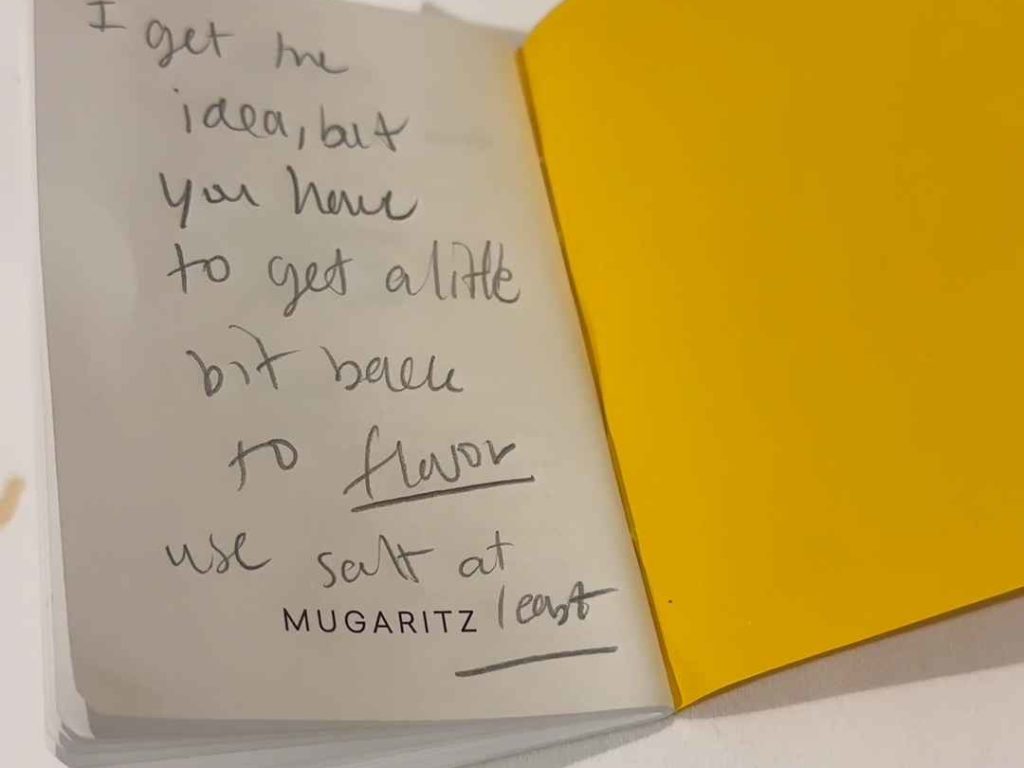 I get the
idea, but
you have
to get a little
bit back
to flavor
use salt at
least
MUGARITZ